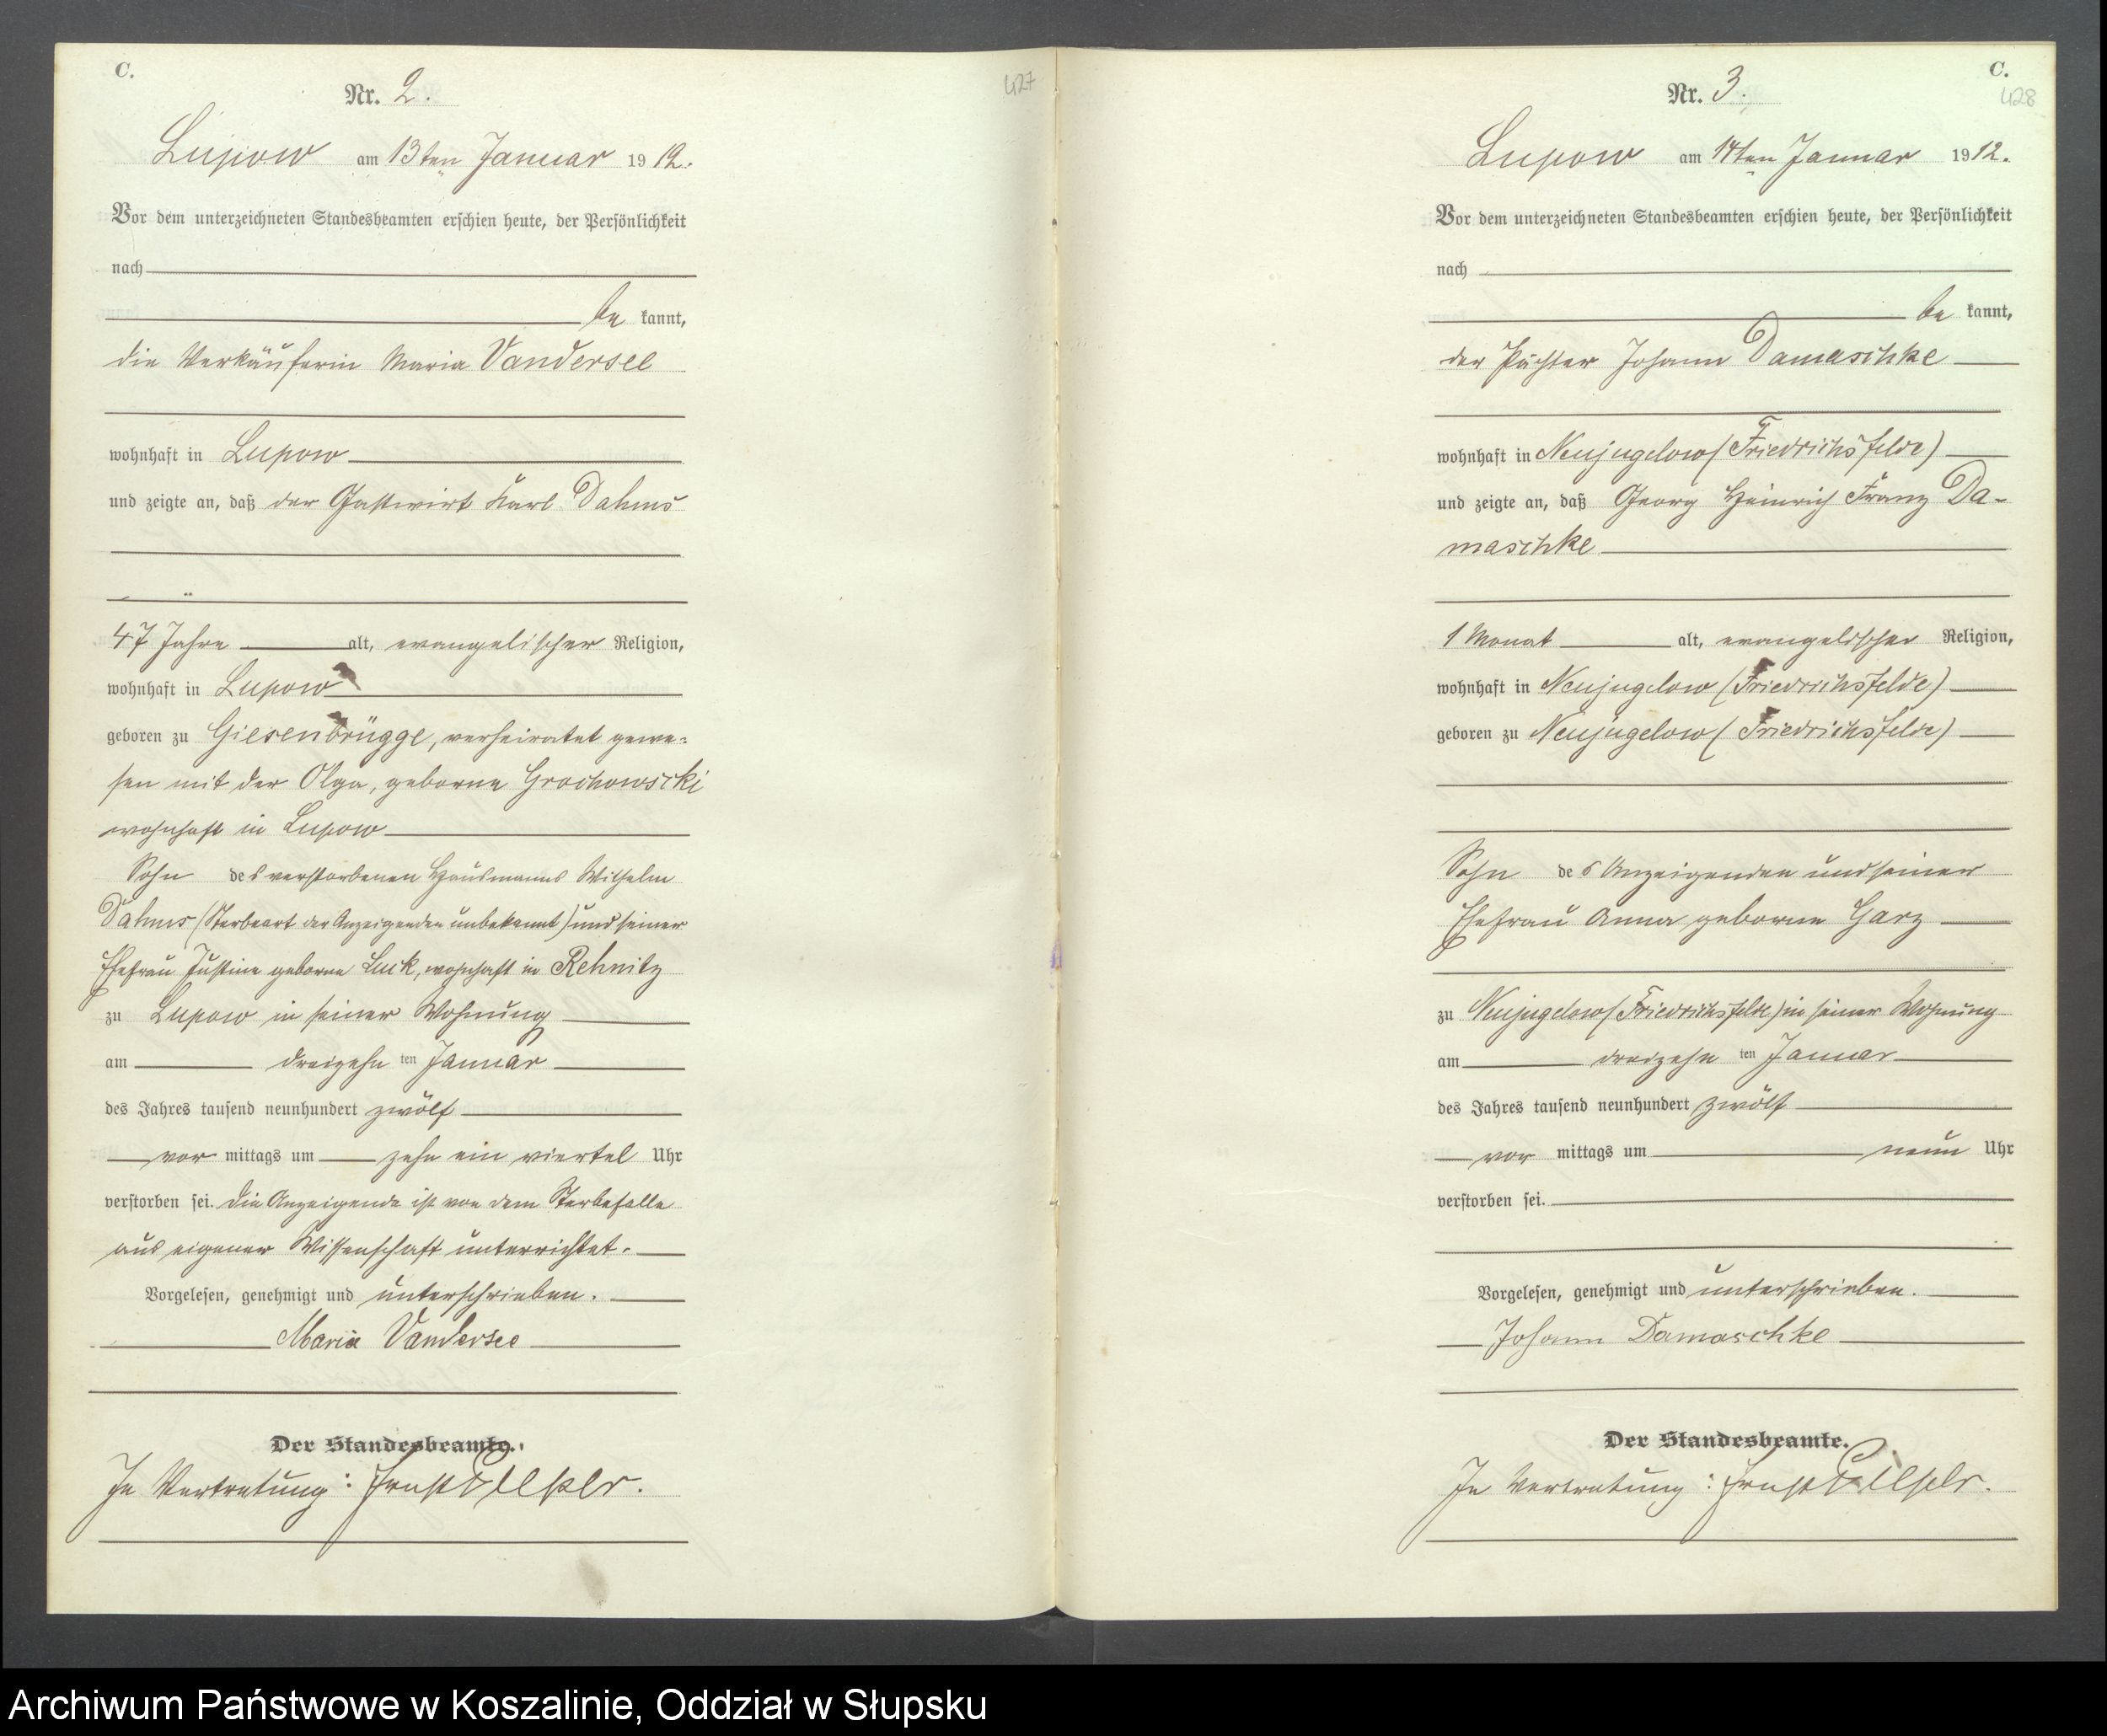 C.
427
Nr. 2.
Lupow am 13ten Januar 1912.
Vor dem unterzeichneten Standesbeamten erschien heute, der Persönlichkeit
nach
be kannt,
die Verkäuferin Maria Vandersee
wohnhaft in Lupow
und zeigte an, daß der Gastwirt Karl Dahms
47 Jahre alt, evangelischer Religion,
wohnhaft in Lupow
geboren zu Giesenbrügge, verheiratet gewe-
sen mit der Olga, geborne Grochowscki
wohnhaft in Lupow
Sohn des verstorbenen Hausmanns Wilhelm
Dahms (Sterbeort der Anzeigenden unbekannt) und seiner
Ehefrau Justine geborne Luck, wohnhaft in Rehnitz
zu Lupow in seiner Wohnung
am dreizehn ten Januar
des Jahres tausend neunhundert zwölf
vor mittags um zehn ein viertel Uhr
verstorben sei. Die Anzeigende ist von dem Sterbefalle
aus eigener Wissenschaft unterrichtet.
Vorgelesen, genehmigt und unterschrieben.
Maria Vandersee
Der Standesbeamte.
In Vertretung: Ernst
C.
428
Nr. 3.
Lupow am 14ten Januar 1912.
Vor dem unterzeichneten Standesbeamten erschien heute, der Persönlichkeit
nach
be kannt,
der Pächter Johann Damaschke
wohnhaft in Neujugelow (Friedrichsfelde)
und zeigte an, daß Georg Heinrich Franz Da-
maschke
1 Monat alt, evangelischer Religion,
wohnhaft in Neujugelow (Friedrichsfelde)
geboren zu Neujugelow (Friedrichsfelde)
Sohn des Anzeigenden und seiner
Ehefrau Anna geborne Garz
zu Neujugelow (Friedrichsfelde) in seiner Wohnung
am dreizehn ten Januar
des Jahres tausend neunhundert zwölf
vor mittags um neun Uhr
verstorben sei.
Vorgelesen, genehmigt und unterschrieben.
Johann Damaschke
Der Standesbeamte.
In Vertretung: Ernst
Archiwum Państwowe w Koszalinie, Oddział w Słupsku